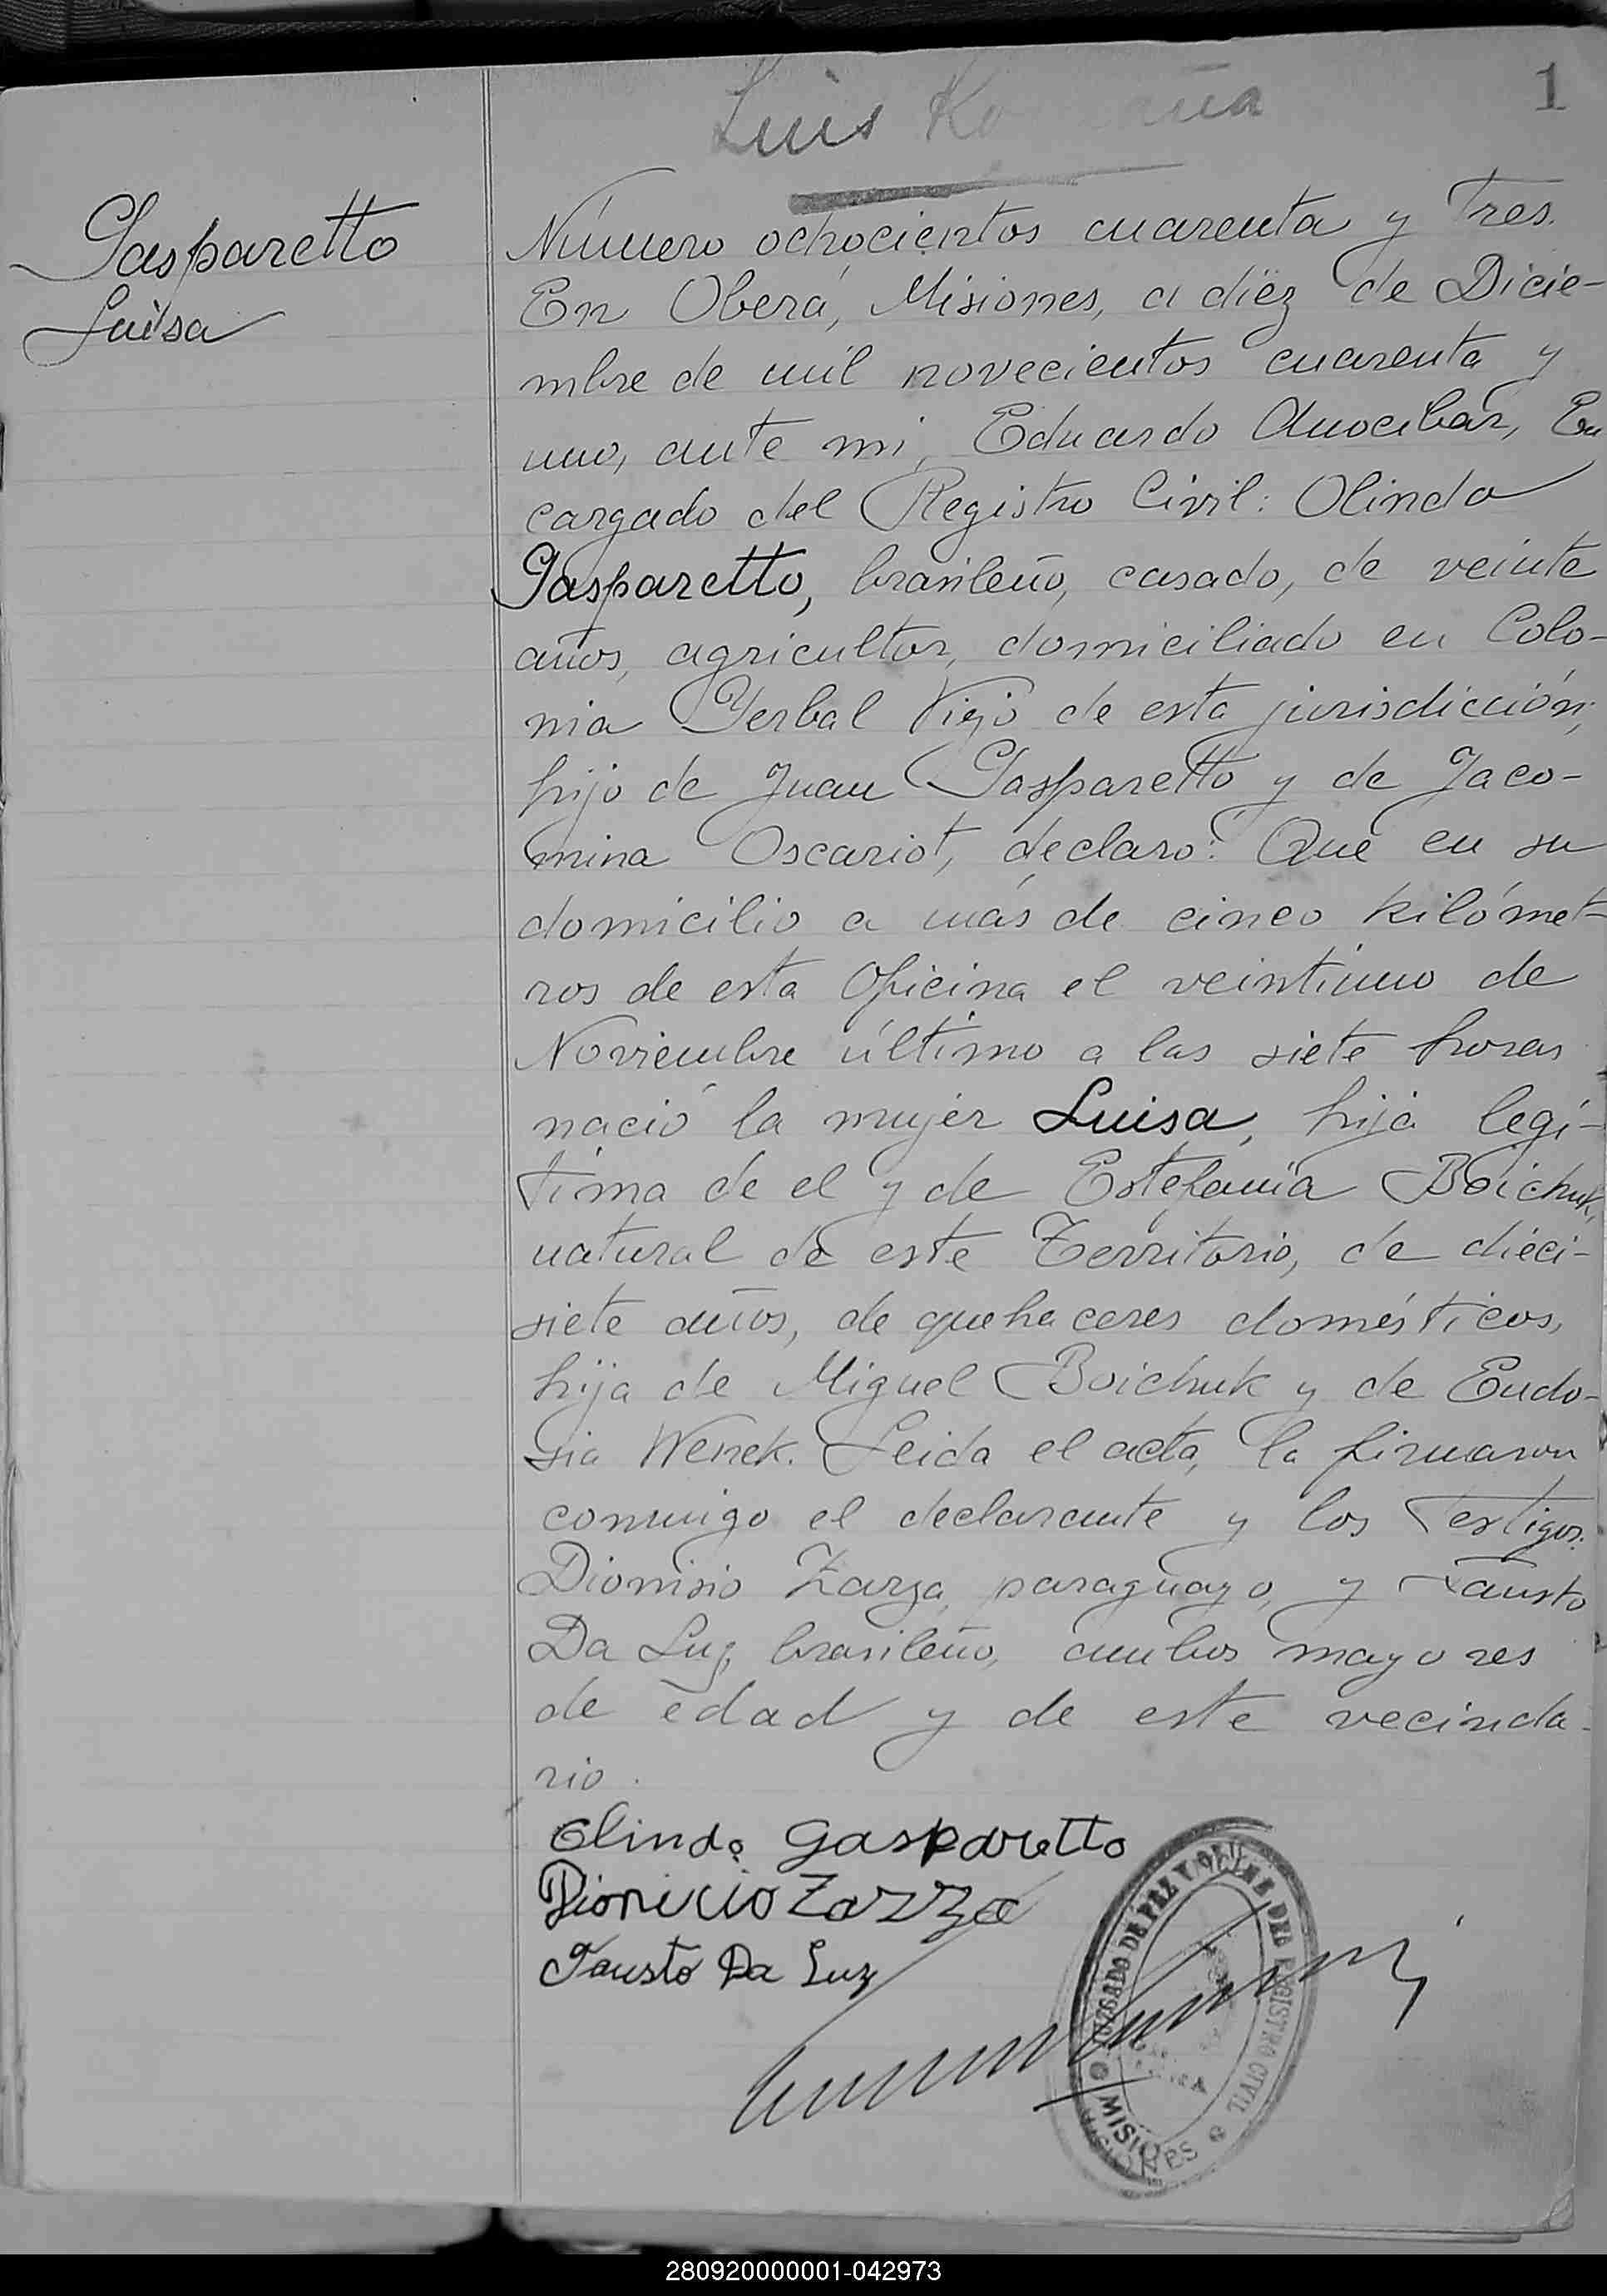 1
Luis
Gasparetto
Luisa
Número ochocientos cuarenta y Tres.
En Oberá, Misiones, a diëz de Dicie-
mbre de mil novecientos cuarenta y
uno, ante mi, Eduardo Anocibar, En
cargado del Registro Civil: Olindo
Gasparetto, brasileño, casado, de veinte
años, agricultor, domiciliado en Colo-
nia Yerbal Viejo de esta jurisdicción,
hijo de Juan Gasparetto y de Jaco-
mina Oscariot, declaro: Que en su
domicilio a más de cinco kilómet-
ros de esta Oficina el veintiuno de
Noviembre último a las siete horas
nació la mujer Luisa, hija legí-
tima de el y de Estefanía Boichuk,
natural de este Territorio, de dieci-
siete años, de quehaceres domésticos,
hija de Miguel Boichuk y de Eudo-
sia Wenek. Leida el acta, la firmaron
conmigo el declarante y los Testigos:
Dionisio Zarza, paraguayo, y Fausto
Da Luz, brasileño, ambos mayores
de edad y de este vecinda-
rio.
Olindo Gasparetto
Dionicio Zarza
Fausto Da Luz
JUZGADO DE PAZ Y OFICINA DEL REGISTRO CIVIL
MISIONES
280920000001-042973